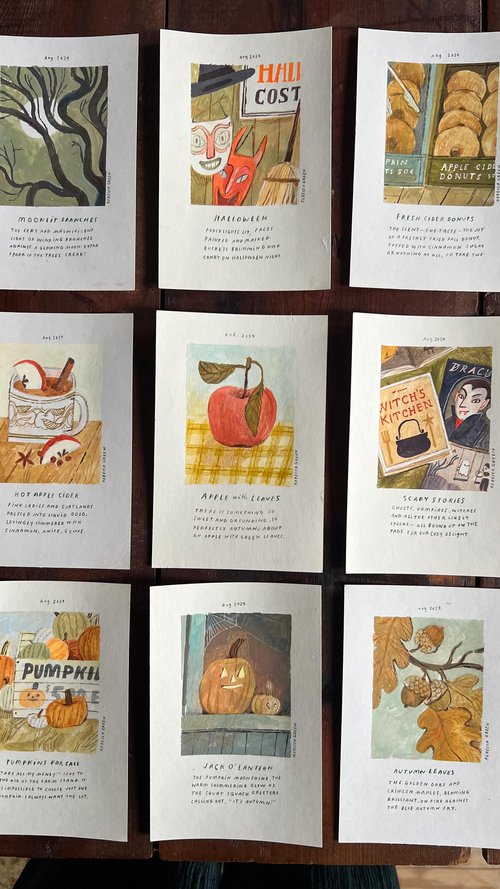 Aug 2024
REBECCA GREEN
MOONLIT BRANCHES
THE VERY AND MAGNIFICENT
SIGHT OF WINDING BRANCHES
AGAINST A GLOWING MOON. EXTRA
SPOOK IF THE TREES CREAK!
Aug 2024
HALL
COST
REBECCA GREEN
HALLOWEEN
PORCHLIGHTS LIT, FACES
PAINTED AND MASKED.
BUCKETS BRIMMING WITH
CANDY ON HALLOWEEN NIGHT.
Aug 2024
PKIN
TS 50¢
APPLE CIDE
DONUTS 50
REBECCA GREEN
FRESH CIDER DONUTS
THE SCENT—THE TASTE—THE JOY
OF A FRESHLY FRIED FALL DONUT.
TOPPED WITH CINNAMON SUGAR
OR NOTHING AT ALL, I'LL TAKE TWO.
Aug 2024
REBECCA GREEN
HOT APPLE CIDER
PINK LADIES AND CORTLANDS
PRESSED INTO LIQUID GOLD,
LOVINGLY SIMMERED WITH
CINNAMON, ANISE, CLOVE.
Aug, 2024
REBECCA GREEN
APPLE with LEAVES
THERE IS SOMETHING SO
SWEET AND GROUNDING, SO
PERFECTLY AUTUMN, ABOUT
AN APPLE WITH GREEN LEAVES.
Aug 2024
WITCH'S
KITCHEN
DRACU
REBECCA GREEN
SCARY STORIES
GHOSTS, VAMPIRES, WITCHES
AND ALL THE OTHER LIKELY
SPOOKS— ALL BOUND UP ON THE
PAGE FOR OUR COZY DELIGHT.
Aug 2024
PUMPKI
REBECCA GREEN
PUMPKINS FOR SALE
"TAKE ALL MY MONEY" I SAY TO
THE KID AT THE FARM STAND. IT
IS IMPOSSIBLE TO CHOOSE JUST ONE
PUMPKIN. I ALWAYS WANT THE LOT.
Aug 2024
REBECCA GREEN
JACK O'LANTERN
THE PUMPKIN MOONSHINE, THE
WARM SHIMMERING GLOW OF
THE SQUAT SQUASH GREETERS
CALLING OUT, "IT'S AUTUMN!"
Aug 2024
REBECCA GREEN
AUTUMN LEAVES
THE GOLDEN OAKS AND
CRIMSON MAPLES, BEAMING
BRILLIANT, ON FIRE AGAINST
THE BLUE AUTUMN SKY.